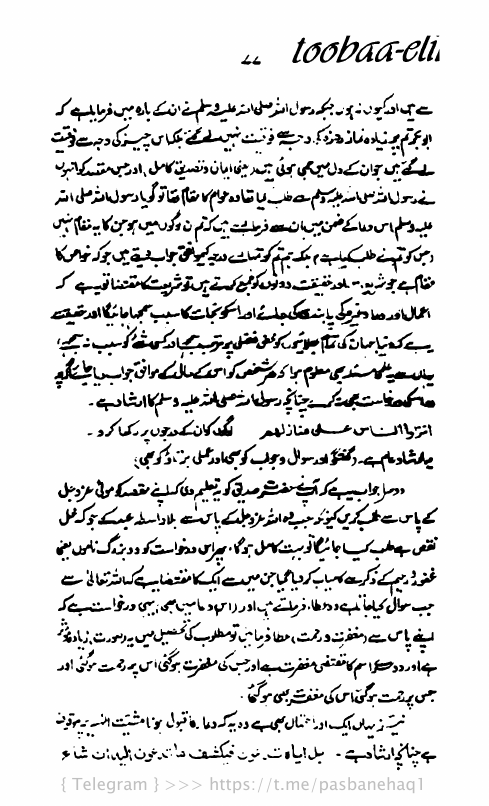 toobaa-eli
سے ہیں اور کیوں نہ ہوں جبکہ رسول اللہ صلی اللہ علیہ وسلم نے ان کے بارہ میں فرمایا ہے کہ
ابوبکر تم پر زیادہ نماز وغیرہ کی وجہ سے فوقیت نہیں لے گئے بلکہ اس چیز کی وجہ سے فوقیت
لے گئے ہیں جو ان کے دل میں جمی ہوئی ہے یعنی ایمان و تصدیق کامل، اور جس مقصد کو انہوں
نے رسول اللہ صلی اللہ علیہ وسلم سے طلب کیا تھا وہ عوام کا مقام تھا تو گویا رسول اللہ صلی اللہ
علیہ وسلم اس دعا کے ضمن میں ان سے فرما رہے ہیں کہ تم ان لوگوں میں ہو جن کا یہ مقام نہیں
جس کو تم نے طلب کیا ہے، بلکہ ہم تم کو تمہارے درجہ کے موافق جواب دیتے ہیں جو کہ خواص کا
مقام ہے جو شریعت اور حقیقت دونوں کو جمع کرتے ہیں تو شریعت کا مقتضا تو یہ ہے کہ
اعمال اور دعا وغیرہ کی پابندی کی جائے اور اس کو نجات کا سبب سمجھا جائے گا اور حقیقت
یہ ہے کہ تمام بھلائیوں کو فضل پر مرتب سمجھے اور کسی شے کو سبب نہ سمجھے،
یہاں سے یہ علمی مسئلہ بھی معلوم ہوا کہ ہر شخص کو اس کے حال کے موافق جواب دیا جائے گو
درخواست کچھ ہی کرے چنانچہ رسول اللہ صلی اللہ علیہ وسلم کا ارشاد ہے۔
انزلوا الناس علی منازلھم لوگوں کو ان کے درجوں پر رکھا کرو۔
یہ ارشاد عام ہے۔ (گفتگو اور سوال و جواب کو بھی اور عملی برتاؤ کو بھی)
دوسرا جواب یہ ہے کہ آپ نے حضرت صدیق کو یہ تعلیم دی کہ اپنے مقصد کو مولیٰ عزوجل
کے پاس سے طلب کریں کیونکہ جب وہ اللہ عزوجل کے پاس سے بلا واسطہ عبد کے جو کہ محل
نقص ہے طلب کیا جائے گا تو بہت کامل ہوگا، پھر اس درخواست کو دو بزرگ ناموں یعنی
غفور و رحیم کے ذکر سے کامیاب کر دیا گیا جن میں سے ایک کا مقتضا یہ ہے کہ اللہ تعالیٰ سے
جب سوال کیا جائے وہ عطا فرماتے ہیں اور اس دعا میں بھی یہی درخواست ہے کہ
اپنے پاس سے (مغفرت و رحمت) عطا فرمائیں تو مطلوب کی تحصیل میں یہ صورت زیادہ مؤثر
ہے اور دوسرے اسم کا مقتضی مغفرت ہے اور جس کی مغفرت ہوگئی اس پر رحمت ہوگئی اور
جس پر رحمت ہوگئی اس کی مغفرت بھی ہوگئی۔
نیز یہاں ایک اور احتمال بھی ہے وہ یہ کہ دعا کا قبول ہونا مشیت الٰہیہ پر موقوف
ہے چنانچہ ارشاد ہے۔ بل ایاہ تدعون فیکشف ما تدعون الیہ ان شاء
{ Telegram } >>> https://t.me/pasbanehaq1